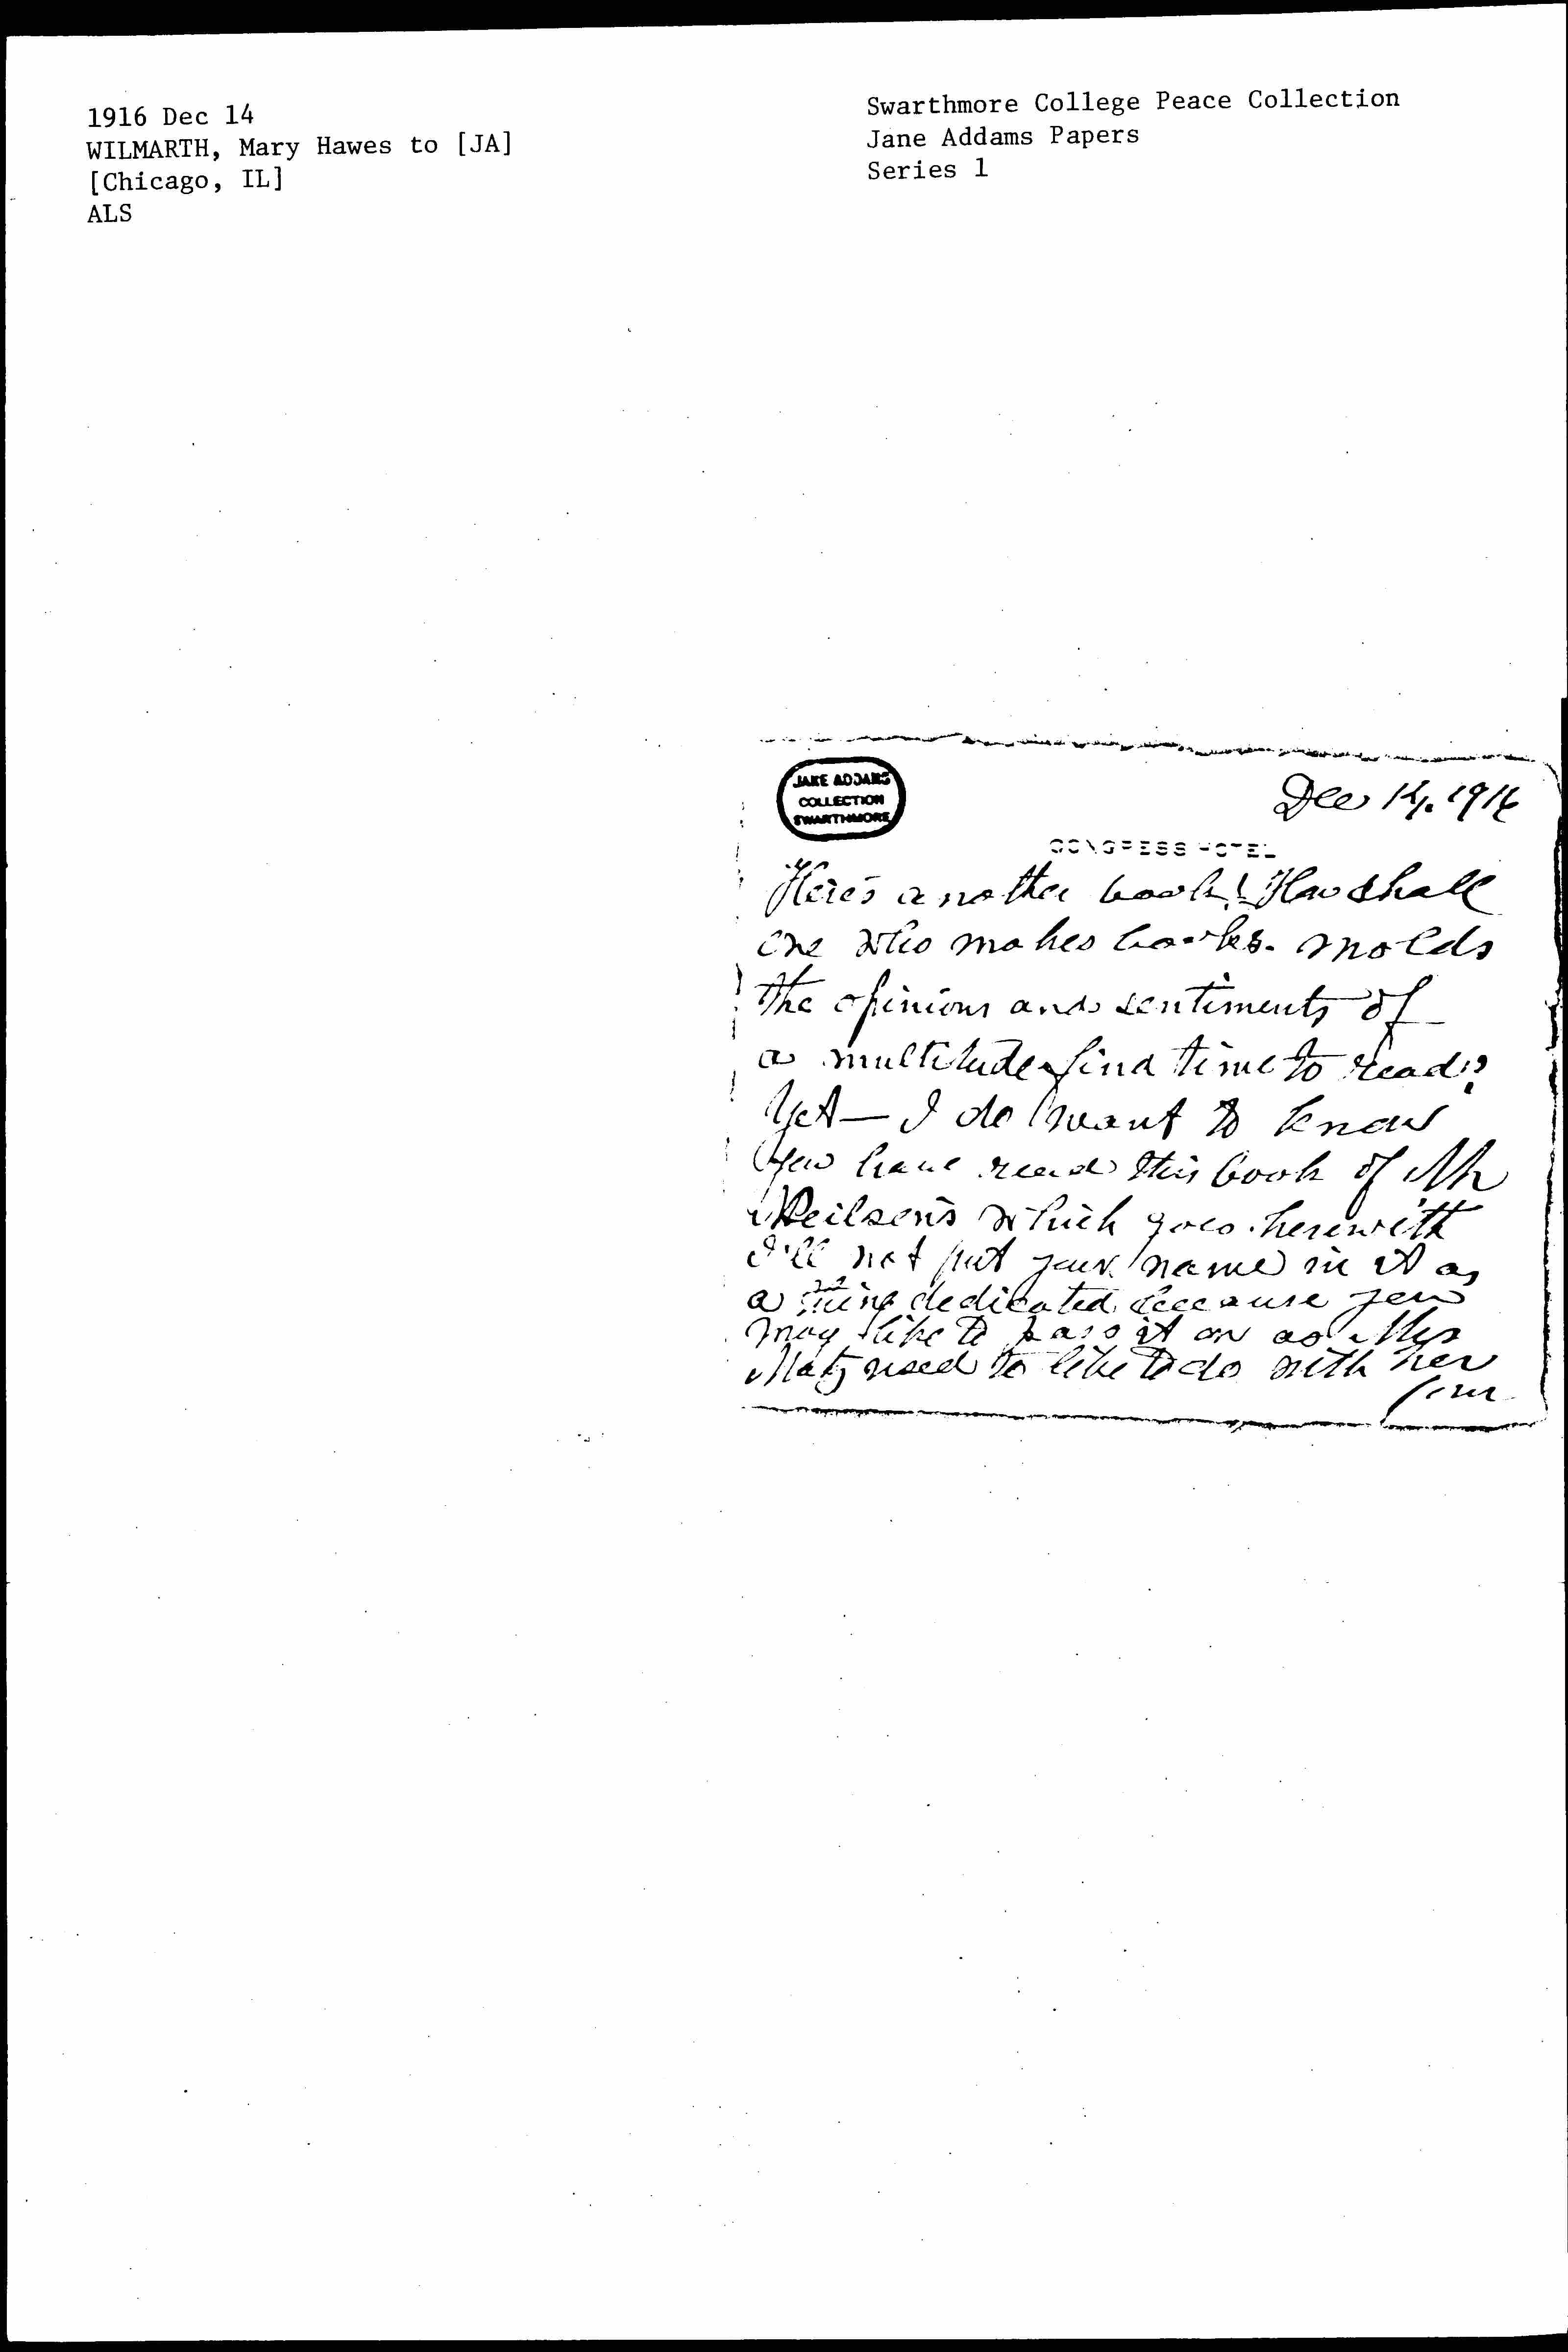 1916 Dec 14
WILMARTH, Mary Hawes to [JA]
[Chicago, IL]
ALS
Swarthmore College Peace Collection
Jane Addams Papers
Series 1
JANE ADDAMS
COLLECTION
SWARTHMORE
Dec 14, 1916
CONGRESS HOTEL
Here's another book! How shall
one who makes books. molds
the opinions and sentiments of
a multitude find time to read?
Yet— I do want to know
you have read this book of Mr
Neilson's which goes herewith
I'll not put your name in it as
a thing dedicated because you
may like to pass it on as Mrs
Matz used to like to do with her